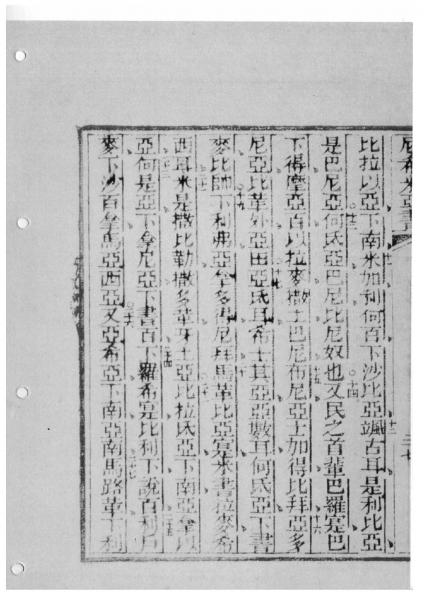 尼希米亞書
比拉以亞下南米加利何百下沙比亞颯古耳是利比亞
是巴尼亞何氏亞巴尼比尼奴也又民之首輩巴羅寔巴
下得摩亞百以拉麥撒士巴尼布尼亞士加得比拜亞多
尼亞比革外亞田亞氏耳希士其亞亞數耳何氏亞下書
麥比帥下利弗亞拿多尼拜馬革比亞寔米書拉麥希
西耳米是撒比勒撒多革牙士亞比拉氏亞下南亞拿以
亞何是亞下拿尼亞下書百下羅希寔比利下說百利
麥下沙百拿馬亞西亞又亞希亞下南亞南馬路革下利